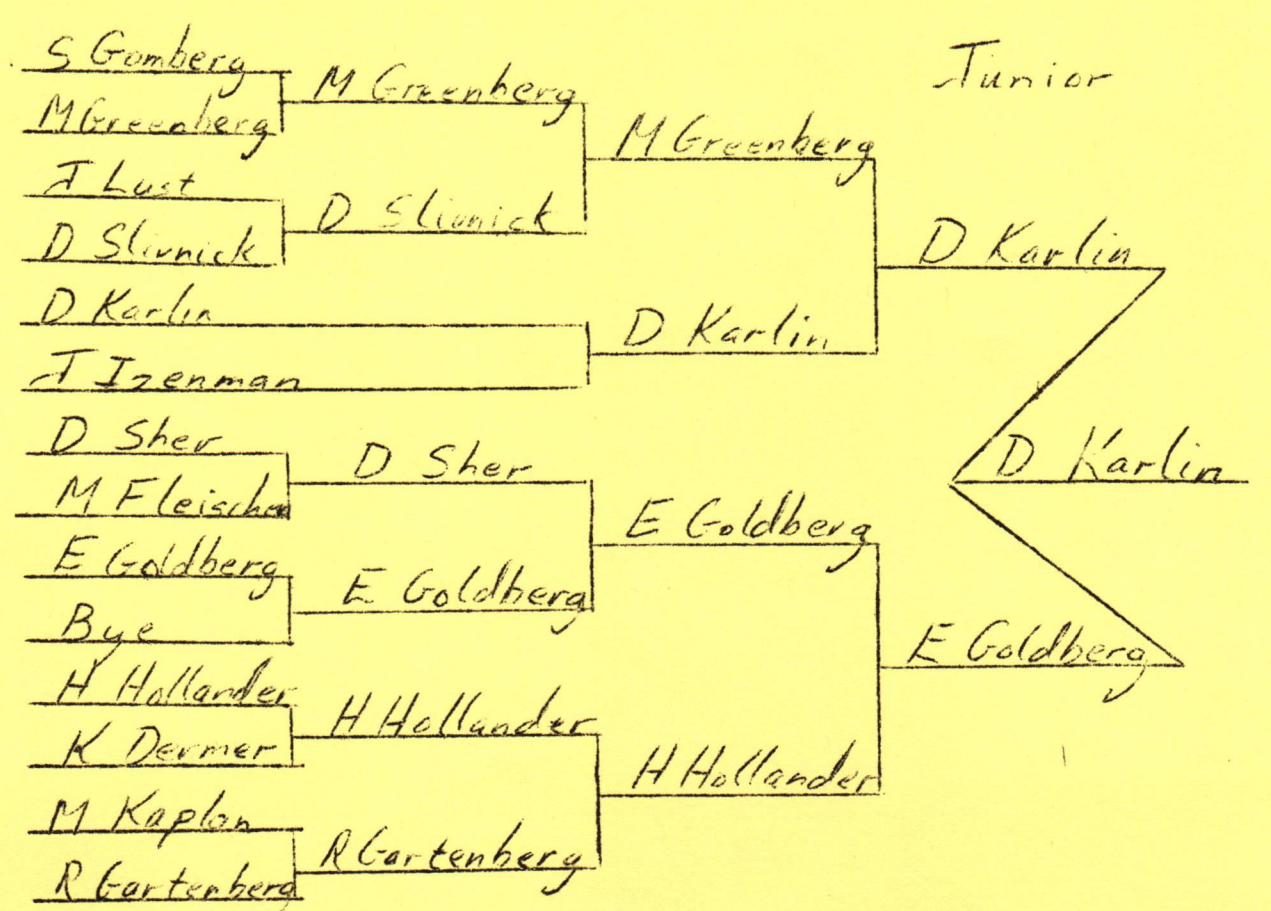 Junior
S Gomberg
M Greenberg
J Lust
D Slivnick
D Karlin
J Izenman
D Sher
M Fleischer
E Goldberg
Bye
H Hollander
K Dermer
M Kaplon
R Gartenberg
M Greenberg
D Slivnick
D Sher
E Goldberg
H Hollander
R Gartenberg
M Greenberg
D Karlin
E Goldberg
H Hollander
D Karlin
E Goldberg
D Karlin